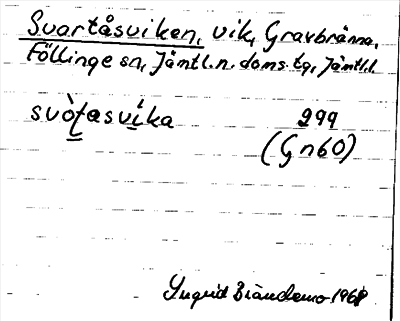 Svartåsviken, vik, Gravbränna,
Föllinge sn, Jämtl.n. doms.tg, Jämtl.l.
svòtasvíka 299
(Gn60)
Ingrid 1961